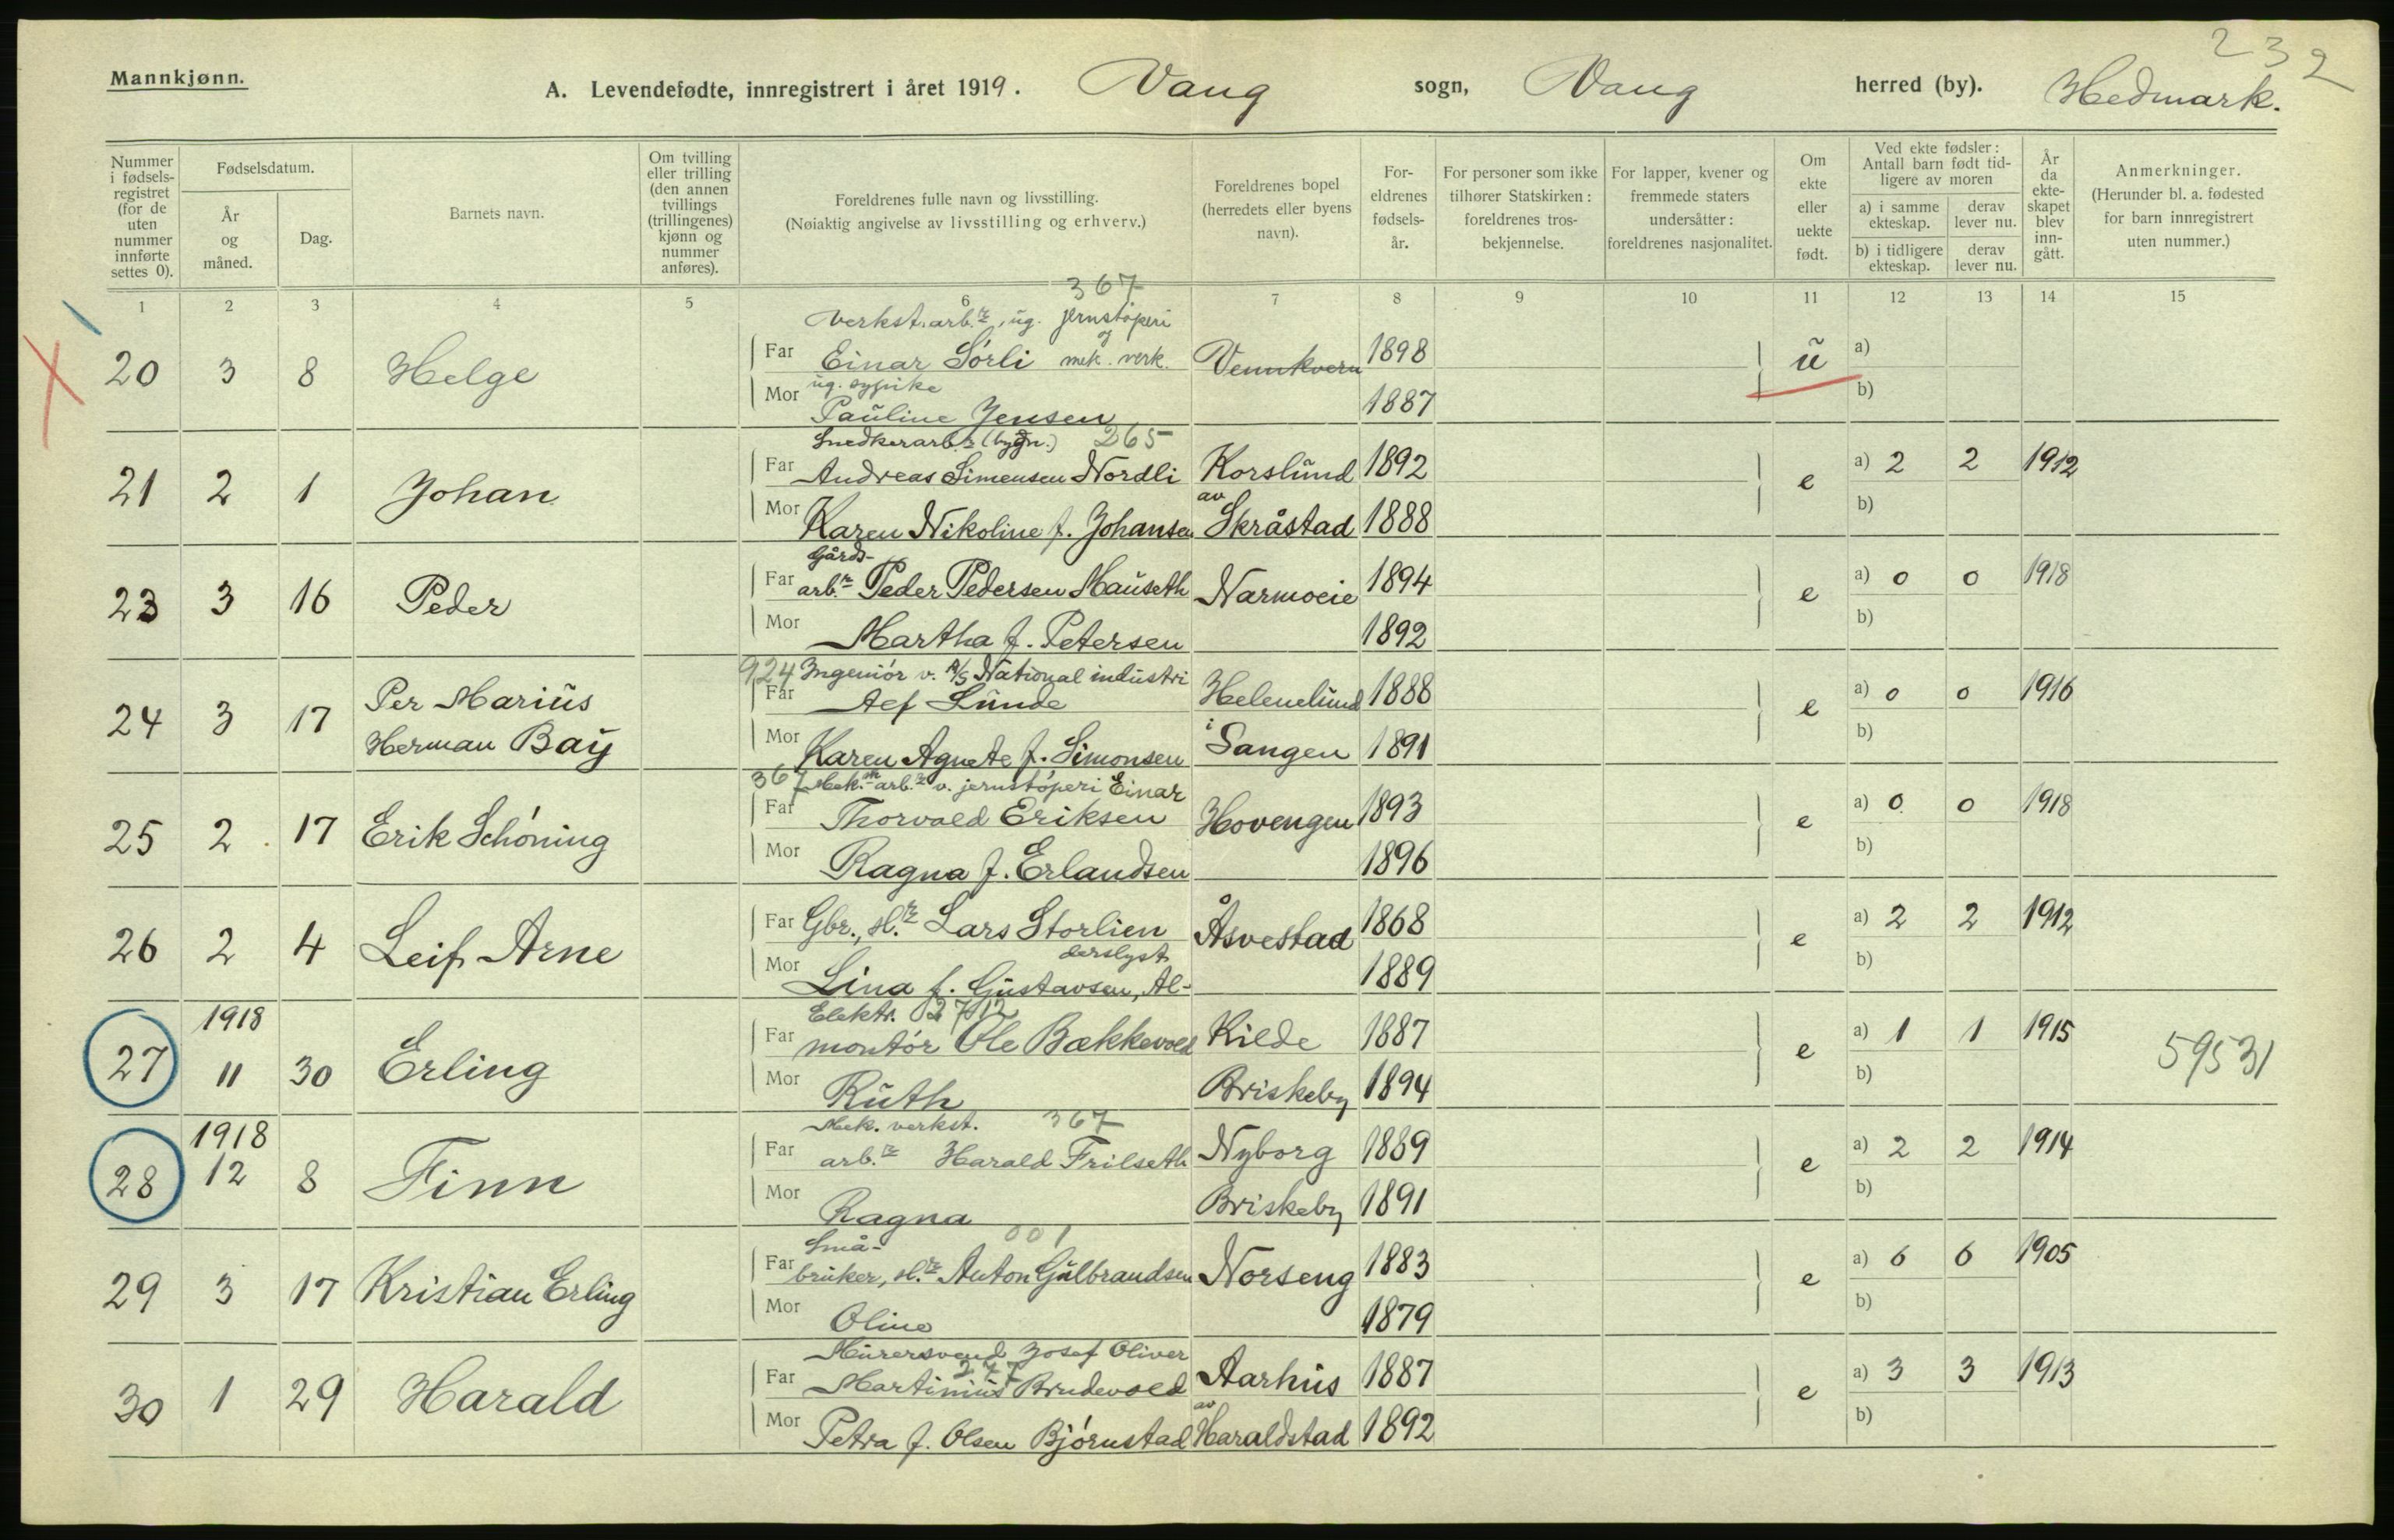 232
Mannkjønn.
A. Levendefødte, innregistrert i året 1919. Vang sogn, Vang herred (by). Hedmark.
Nummer i fødsels-registret (for de uten nummer innførte settes 0).
Fødselsdatum.
År og måned.
Dag.
Barnets navn.
Om tvilling eller trilling (den annen tvillings (trillingenes) kjønn og nummer anføres).
Foreldrenes fulle navn og livsstilling.
(Nøiaktig angivelse av livsstilling og erhverv.)
Foreldrenes bopel (herredets eller byens navn).
For-eldrenes fødsels-år.
For personer som ikke tilhører Statskirken: foreldrenes tros-bekjennelse.
For lapper, kvener og fremmede staters undersåtter: foreldrenes nasjonalitet.
Om ekte eller uekte født.
Ved ekte fødsler: Antall barn født tid-ligere av moren
a) i samme ekteskap.
derav lever nu.
b) i tidligere ekteskap.
derav lever nu.
År da ekte-skapet blev inn-gått.
Anmerkninger.
(Herunder bl. a. fødested for barn innregistrert uten nummer.)
1 2 3 4 5 6 7 8 9 10 11 12 13 14 15
367
Verkst.arb.r, ug. jernstøperi
20 3 8 Helge Far Einar Sørli og mek. verk. Vennkvern 1898 ũ a)
ug. sypike
Mor Pauline Jensen 1887 b)
Snedkerarb.r (bygn.) 265
21 2 1 Johan Far Andreas Simensen Nordli Korslund 1892 e a) 2 2 1912
Mor Karen Nikoline f. Johansen av Skråstad 1888 b)
Gårds-
23 3 16 Peder Far arb.r Peder Pedersen Mauseth Narmoeie 1894 e a) 0 0 1918
Mor Martha f. Petersen 1892 b)
924 Ingeniør v. A/S National industri
24 3 17 Per Marius Far Aef Lunde Helenelund 1888 e a) 0 0 1916
Herman Bay Mor Karen Agnete f. Simonsen i Sangen 1891 b)
367 Mek. arb.r v. jernstøperi Einar
25 2 17 Erik Schöning Far Thorvald Eriksen Hovengen 1893 e a) 0 0 1918
Mor Ragna f. Erlandsen 1896 b)
26 2 4 Leif Arne Far Gbr., sl.r Lars Storlien Åsvestad 1868 e a) 2 2 1912
derslyst
Mor Lina f. Gustavsen, Al- 1889 b)
1918 Elektr.
27 11 30 Erling Far montør Ole Bækkevold Kilde 1887 e a) 1 1 1915 59531
Mor Ruth Briskeby 1894 b)
1918 Mek. verkst. 367
28 12 8 Finn Far arb.r Harald Frilseth Nyborg 1889 e a) 2 2 1914
Mor Ragna Briskeby 1891 b)
Små- 001
29 3 17 Kristian Erling Far bruker, sl.r Anton Gulbrandsen Norseng 1883 e a) 6 6 1905
Mor Oline 1879 b)
Murersvend Josef Oliver
277
30 1 29 Harald Far Martinius Brudevold Aarhus 1887 e a) 3 3 1913
Mor Petra f. Olsen Bjørnstad av Haraldstad 1892 b)